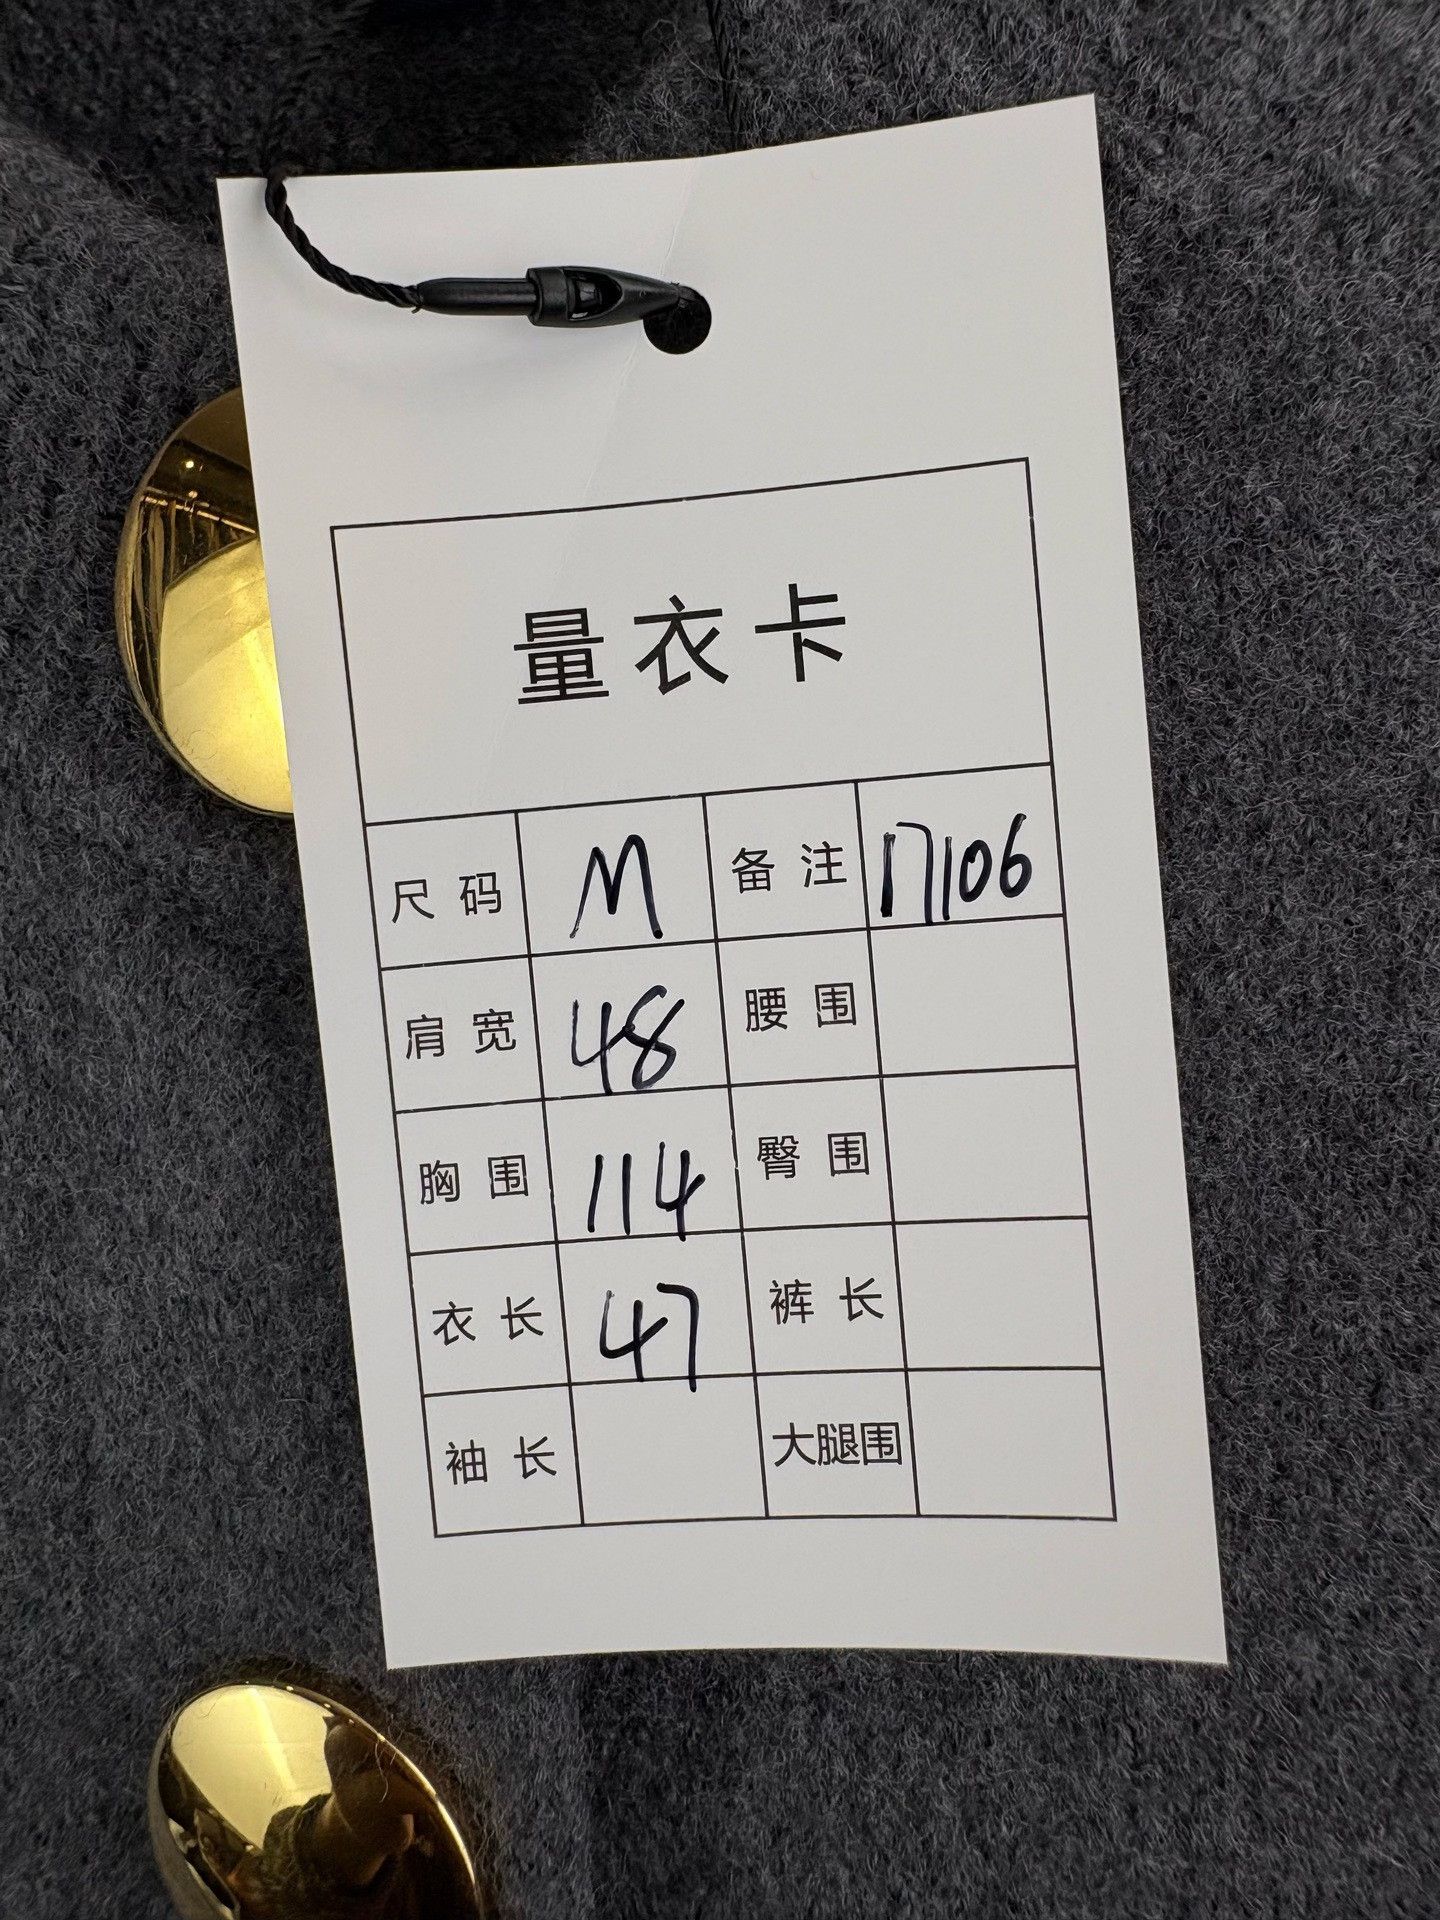 量衣卡
尺码 M 备注 17106
肩宽 48 腰围
胸围 114 臀围
衣长 47 裤长
袖长 大腿围